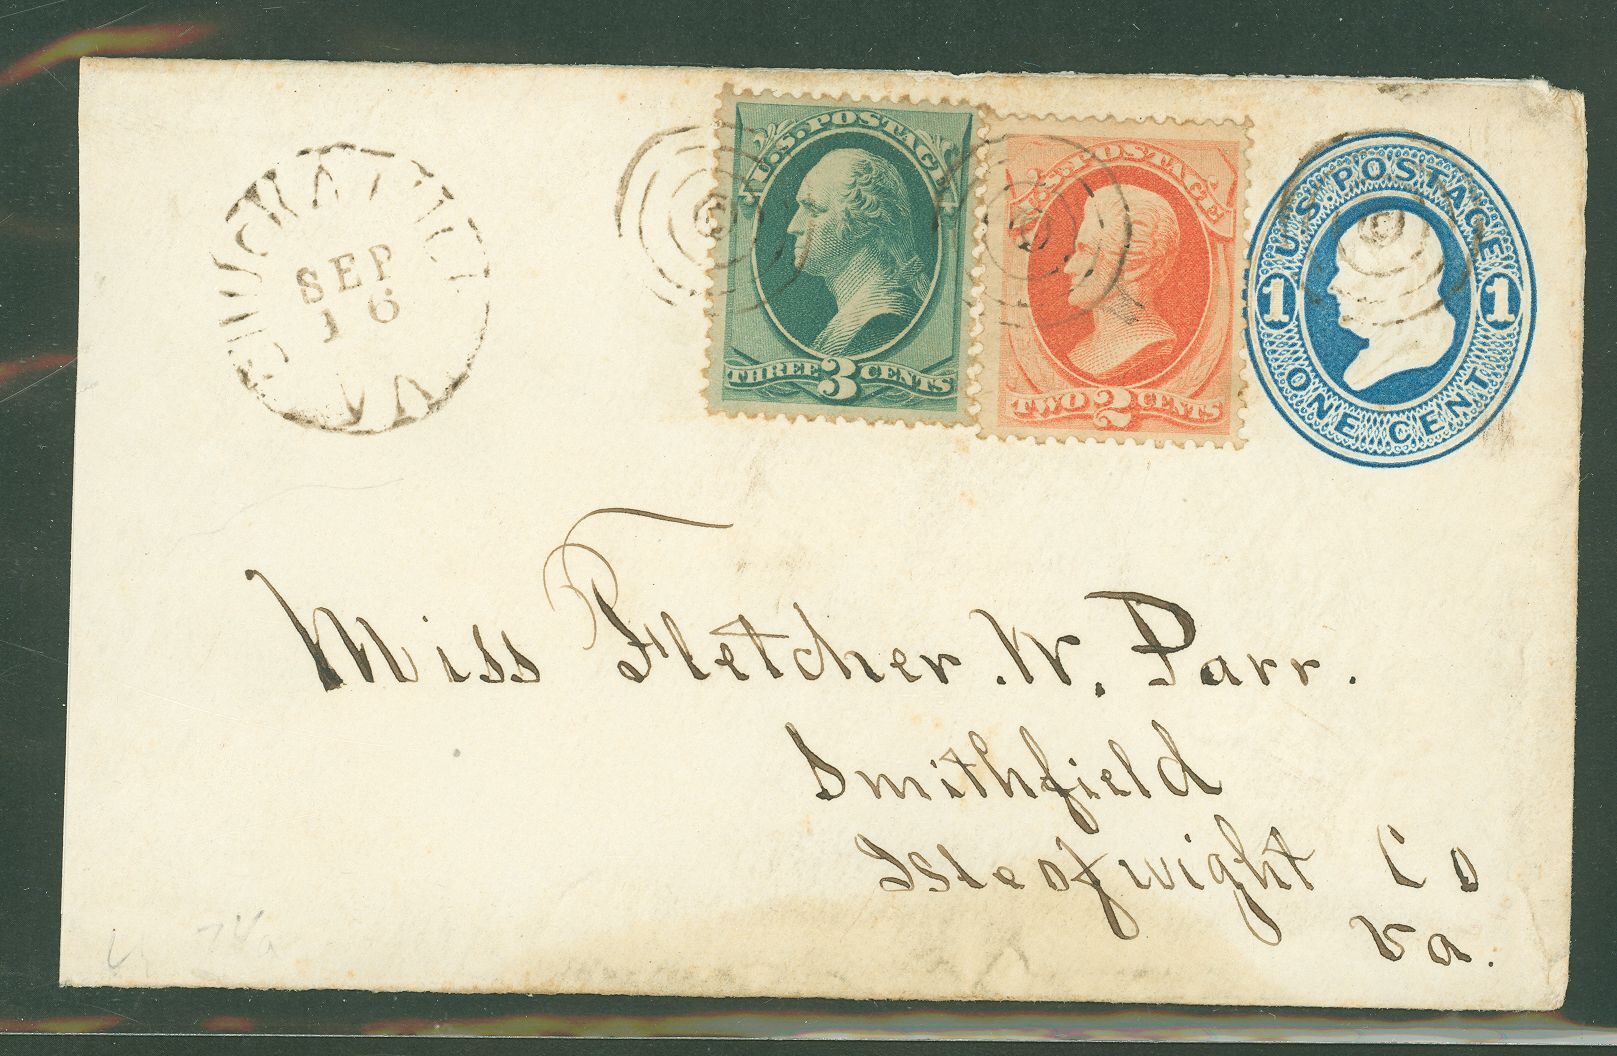 SEP
16
VA
U.S. POSTAGE
THREE 3 CENTS
U.S. POSTAGE
TWO 2 CENTS
U.S. POSTAGE
1 1
ONE CENT
Miss Fletcher. W. Parr.
Smithfield
Isle of wight Co
Va.